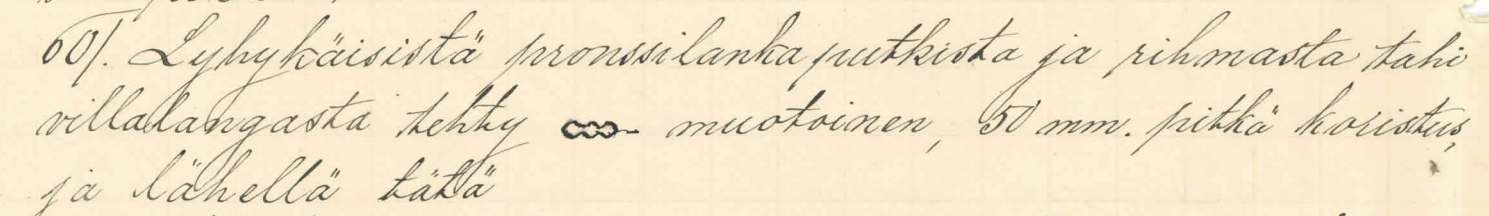 60/. Lyhykäisistä pronssilankaputkista ja rihmasta tahi
villalangasta tehty muotoinen, 50 mm. pitkä koristus,
ja lähellä tätä